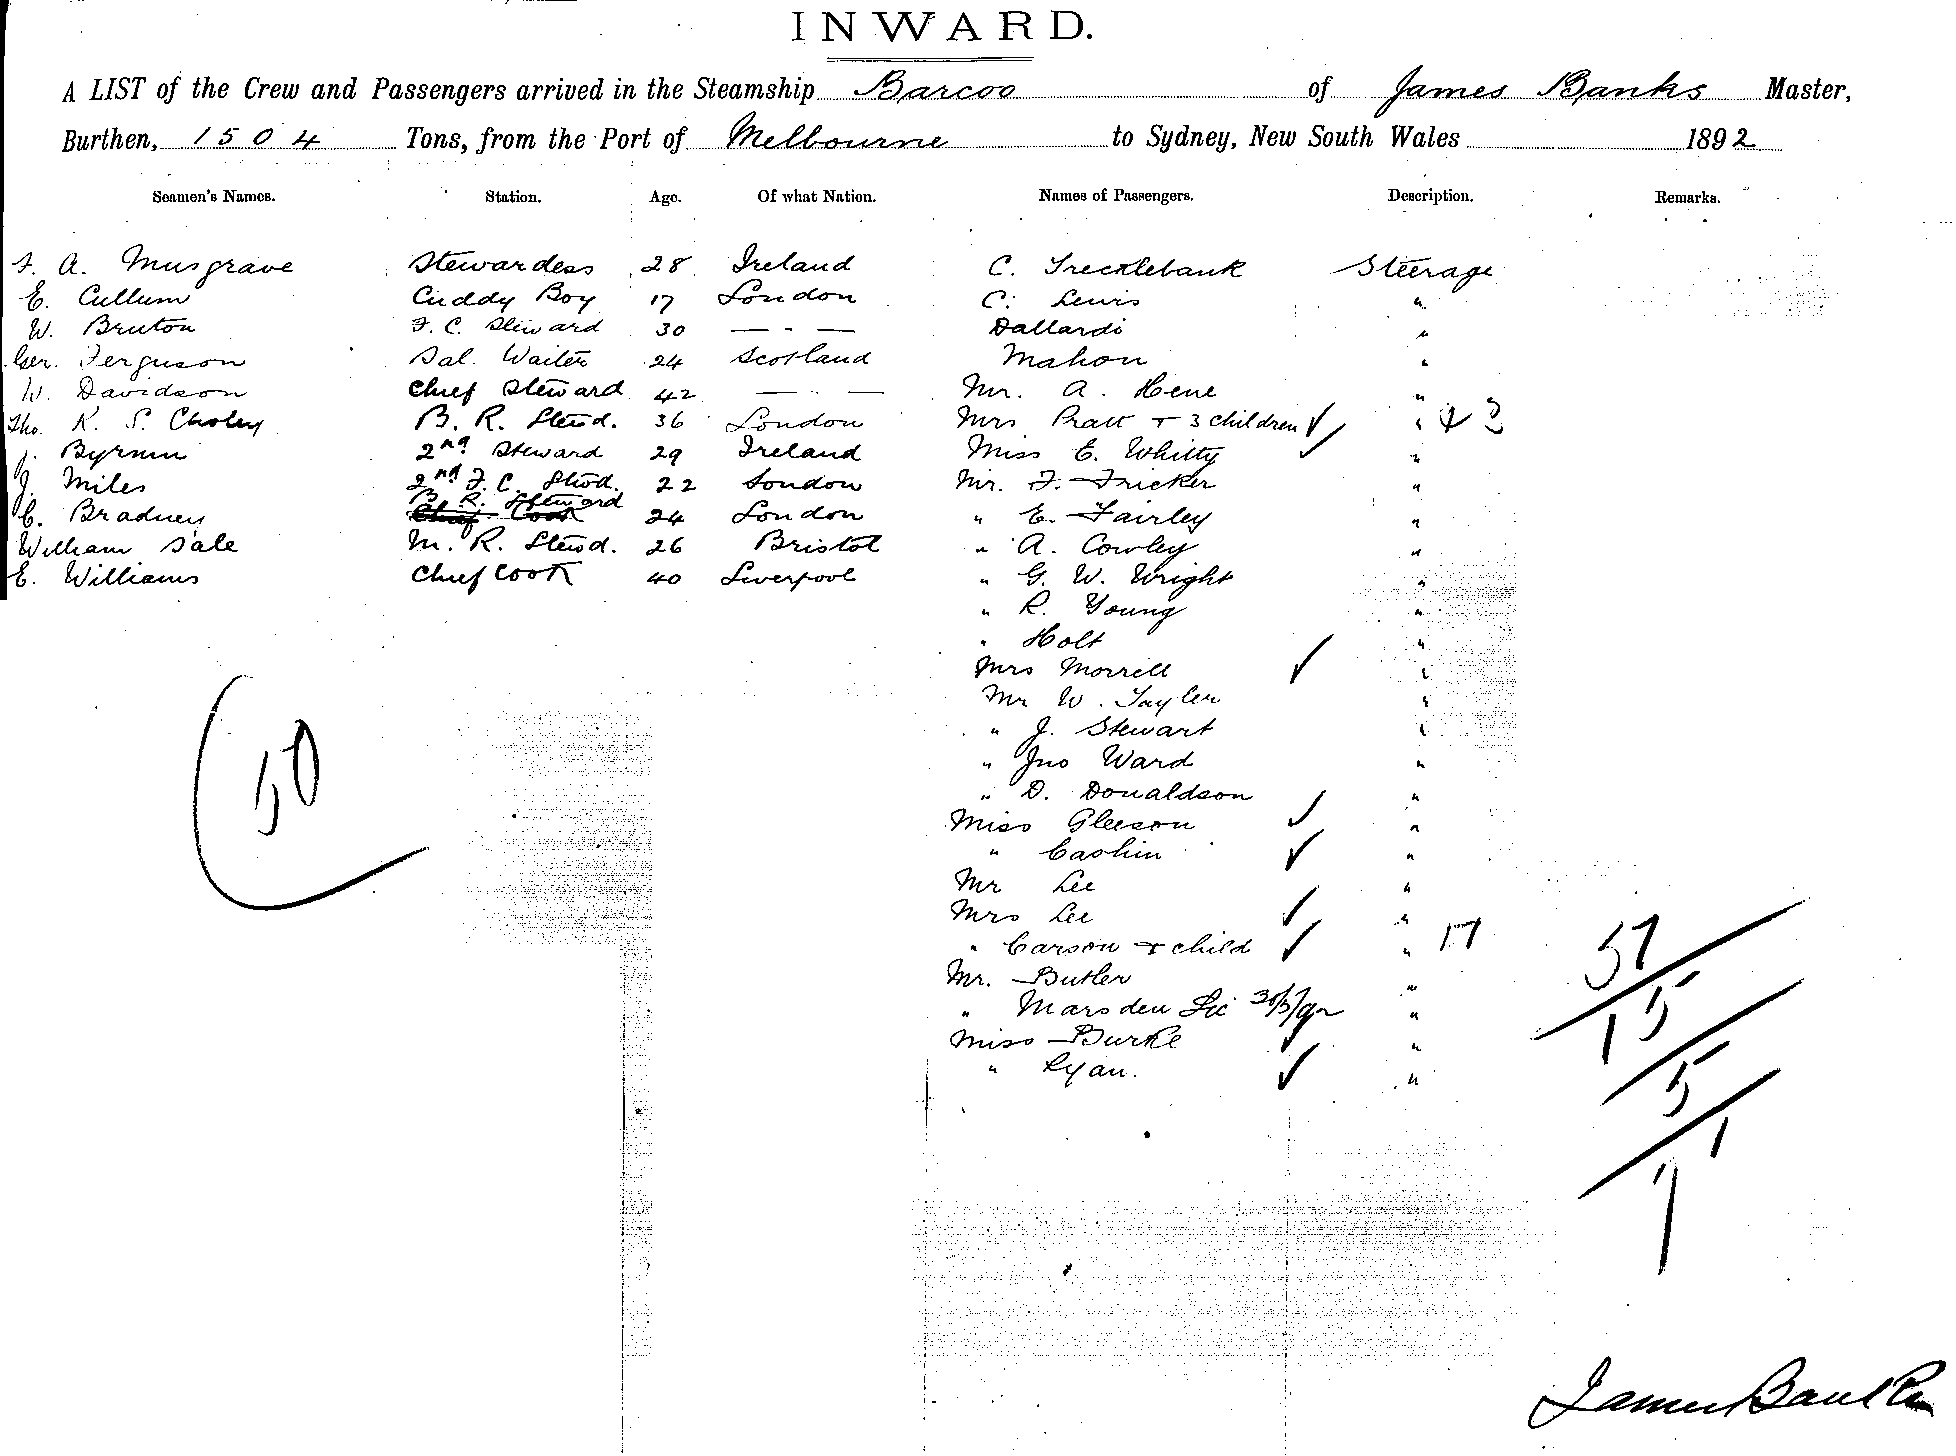 INWARD.
A LIST of the Crew and Passengers arrived in the Steamship Barcoo of James Banks Master,
Burthen, 1504 Tons, from the Port of Melbourne to Sydney, New South Wales 1892
Seamen's Names. Station. Age. Of what Nation. Names of Passengers. Description. Remarks.
F. A. Musgrave Stewardess 28 Ireland C. Trecklebank Steerage
E. Cullum Cuddy Boy 17 London C. Lewis "
W. Bruton F. C. Steward 30 — " — Dallardi "
Ger. Ferguson Sal. Waiter 24 Scotland Mahon "
W. Davidson Chief Steward 42 — " — Mr. A. Hene "
Tho. K. S. Choley B. R. Stewd. 36 London Mrs Pratt + 3 children ✓ " 3
J. Byrnin 2nd Steward 29 Ireland Miss E. Whitty ✓ "
J. Miles 2nd F. C. Stwd. 22 London Mr. F. Fricker "
C. Bradney B. R. Steward Chief Cook 24 London " E. Fairley "
William Sale M. R. Stewd. 26 Bristol " A. Cowley "
E. Williams Chief Cook 40 Liverpool " G. W. Wright "
" R. Young "
" Holt "
Mrs Morrell ✓ "
Mr W. Tayler "
" J. Stewart "
" Jno Ward "
" D. Donaldson "
Miss Gleeson ✓ "
" Cashin ✓ "
Mr Lee "
Mrs Lee ✓ "
" Carson + child ✓ " 17
Mr. Butler "
" Marsden "
Miss Burke ✓ "
" Ryan. ✓ "
50
57
15
5
1
7
James Banks